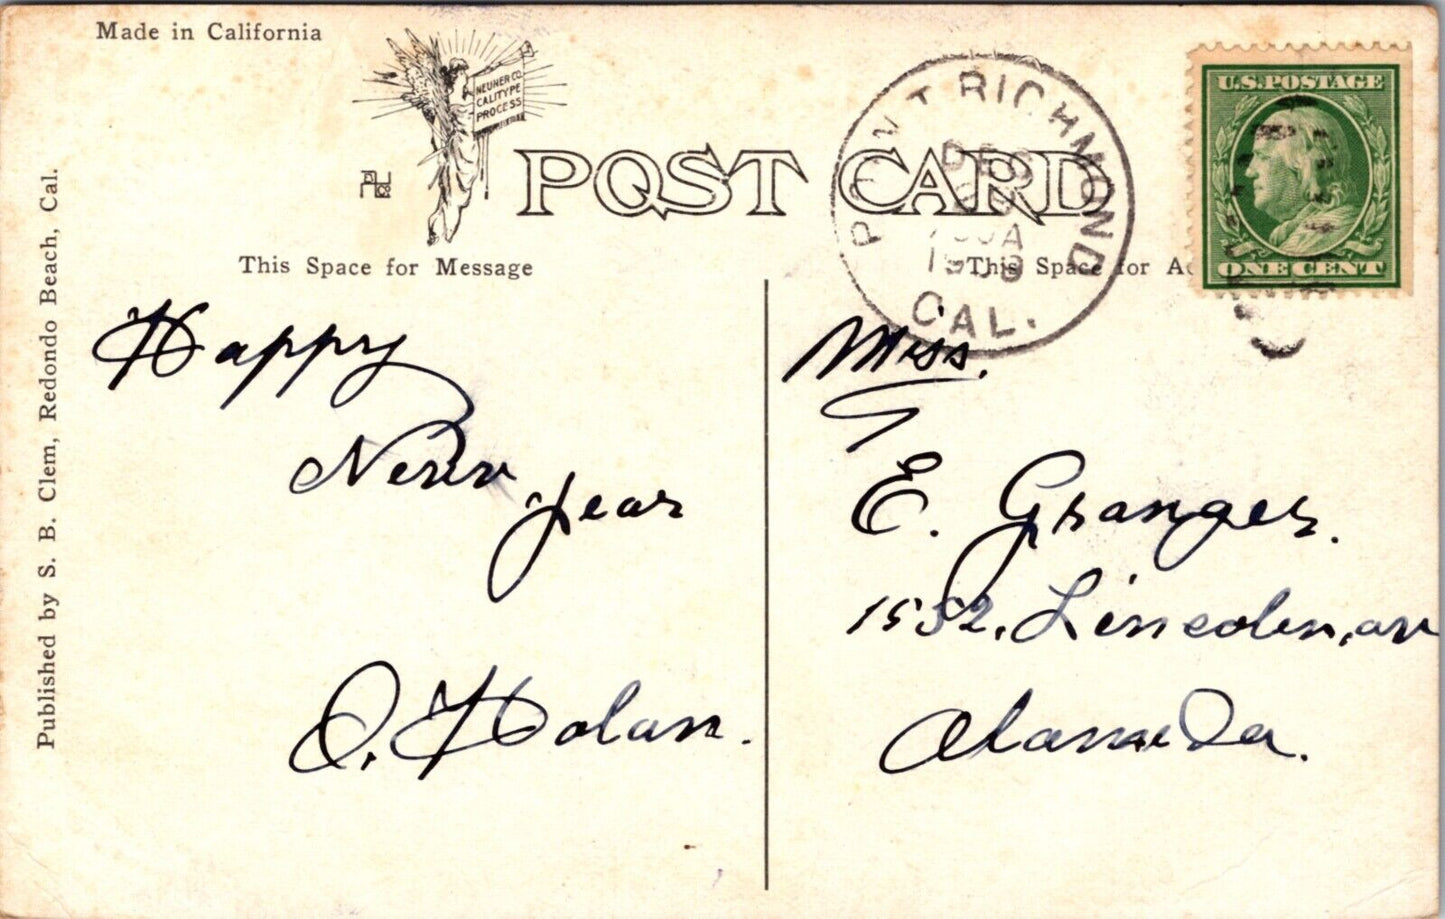 Made in California
NEUNER CO.
CALITYPE
PROCESS
POST CARD
POINT RICHMOND
DEC
1909
CAL.
U.S. POSTAGE
ONE CENT
Published by S. B. Clem, Redondo Beach, Cal.
This Space for Message
This Space for
Happy
New
Year
O. Holan.
Miss.
E. Granger.
1532, Lincoln, av
Alameda.